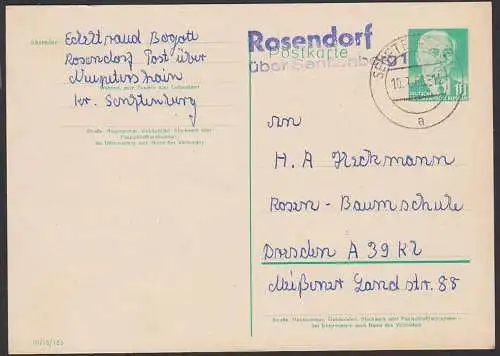 Absender:
Eckltraud Bogott
Rosendorf Post über
Neupetershain
kr. Senftenburg
Wohnort, auch Zustell- oder Leitpostamt
Straße, Hausnummer, Gebäudeteil, Stockwerk oder
Postschließfachnummer;
bei Untermietern auch Name des Vermieters
III/18/185
Rosendorf
Postkarte
über Senftenberg 1
10
a
An
H. A Heckmann
Rosen-Baumschule
Dresden A 39 K2
Meißener Landstr. 88
Straße, Hausnummer, Gebäudeteil, Stockwerk oder Postschließfachnummer;
bei Untermietern auch Name des Vermieters